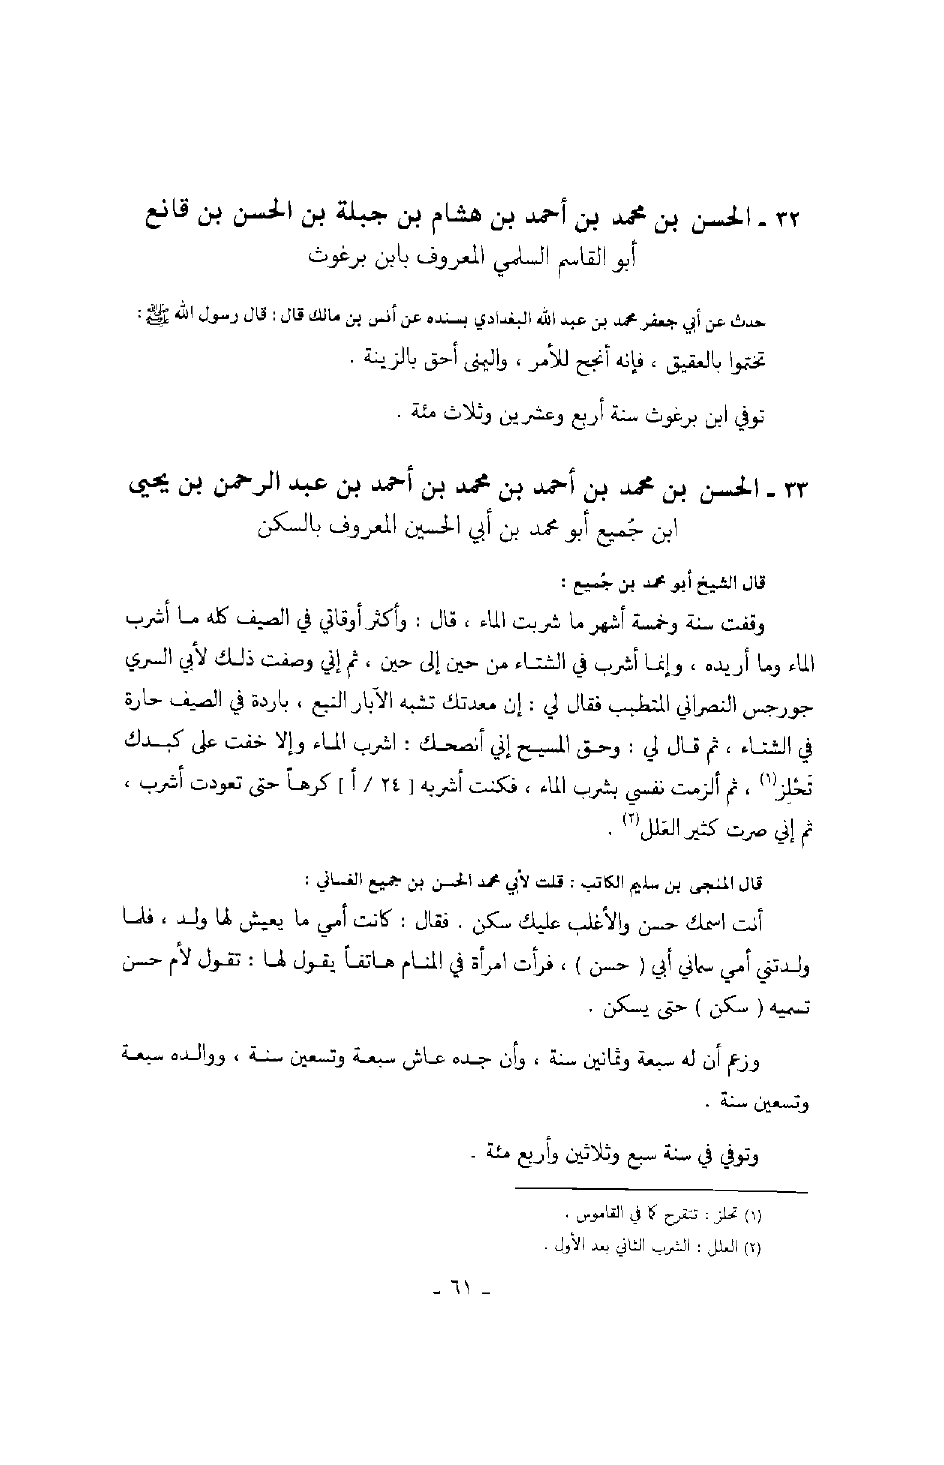 ٣٢ ـ الحسن بن محمد بن أحمد بن هشام بن جبلة بن الحسن بن قانع
أبو القاسم السلمي المعروف بابن برغوث
حدث عن أبي جعفر محمد بن عبد الله البغدادي بسنده عن أنس بن مالك قال : قال رسول الله ﷺ :
تختموا بالعقيق ، فإنه أنجح للأمر ، واليمنى أحق بالزينة .
توفي ابن برغوث سنة أربع وعشرين وثلاث مئة .
٣٣ ـ الحسن بن محمد بن أحمد بن محمد بن أحمد بن عبد الرحمن بن يحيى
ابن جُميع أبو محمد بن أبي الحسين المعروف بالسكن
قال الشيخ أبو محمد بن جُميع :
وقفت سنة وخمسة أشهر ما شربت الماء ، قال : وأكثر أوقاتي في الصيف كله ما أشرب
الماء وما أريده ، وإنما أشرب في الشتاء من حين إلى حين ، ثم إني وصفت ذلك لأبي السري
جورجس النصراني المتطبب فقال لي : إن معدتك تشبه الآبار النبع ، باردة في الصيف حارة
في الشتاء ، ثم قال لي : وحق المسيح إني أنصحك : اشرب الماء وإلا خفت على كبدك
تَحْلِز(١) ، ثم ألزمت نفسي بشرب الماء ، فكنت أشربه [ ٢٤ / أ ] كرهاً حتى تعودت أشرب ،
ثم إني صرت كثير العَلل(٢) .
قال المنجى بن سليم الكاتب : قلت لأبي محمد الحسن بن جميع الغساني :
أنت اسمك حسن والأغلب عليك سكن . فقال : كانت أمي ما يعيش لها ولد ، فلما
ولدتني أمي سماني أبي ( حسن ) ، فرأت امرأة في المنام هاتفاً يقول لها : تقول لأم حسن
تسميه ( سكن ) حتى يسكن .
وزعم أن له سبعة وثمانين سنة ، وأن جده عاش سبعة وتسعين سنة ، ووالده سبعة
وتسعين سنة .
وتوفي في سنة سبع وثلاثين وأربع مئة .
(١) تحلز : تتقرح كما في القاموس .
(٢) العلل : الشرب الثاني بعد الأول .
ـ ٦١ ـ